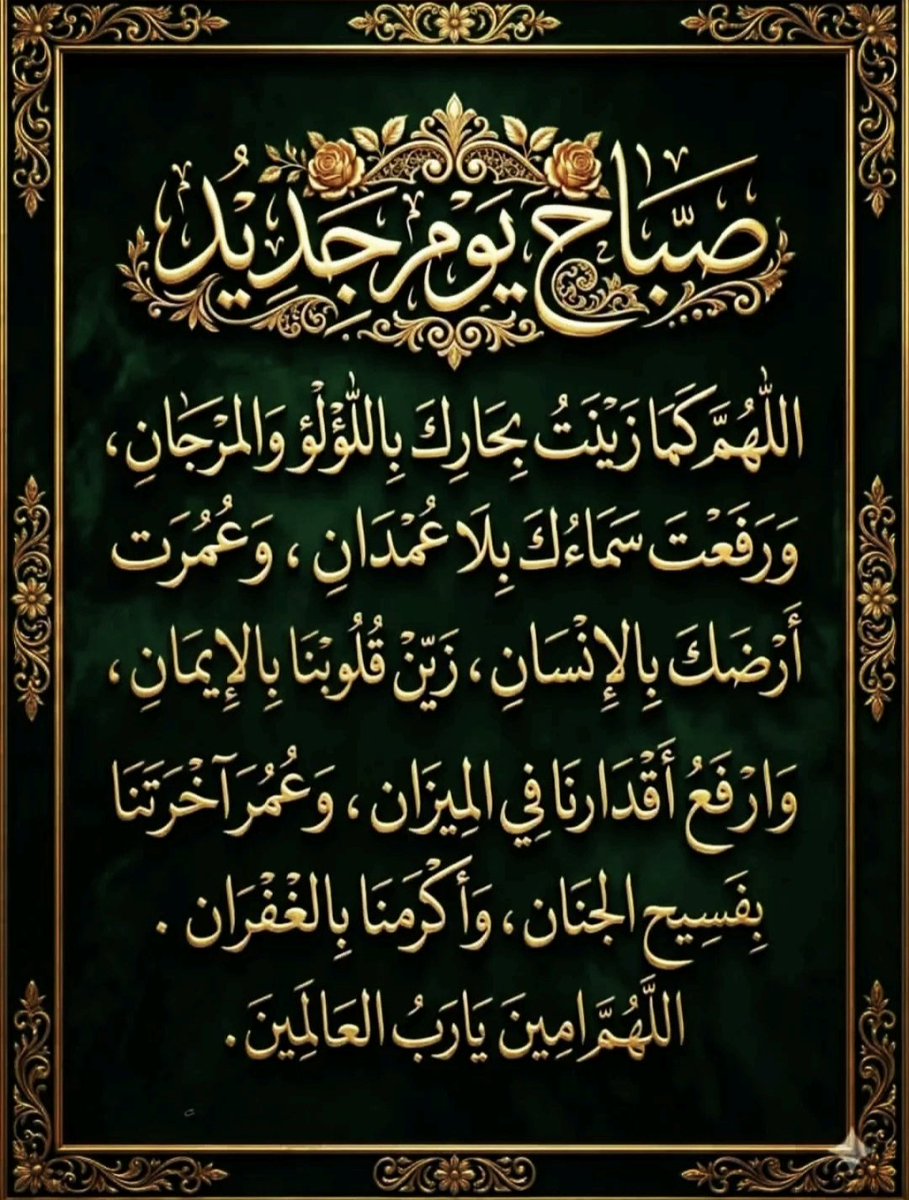 صَبَاحُ يَوْمٍ جَدِيْدُ
اللّٰهُمَّ كَمَا زَيْنَتُ بِحَارِكَ بِاللُّؤْلْؤِ وَالمَرْجَانِ،
وَرَفَعْتَ سَمَاءُكَ بِلَا عُمْدَانِ ، وَعُمُرَت
أَرْضَكَ بِالإِنْسَانِ، زَيّنْ قُلُوبْنَا بِالإِيمَانِ،
وَارْفَعُ أَقْدَارنَا فِي المِيزَان ، وَعُمُرَ آخْرَتَنَا
بِفَسِيح الجنَان ، وَأكْرَمنَا بِالغْفْرَان .
اللَّهُمَّ امِينَ يَارَبُ العَالَمِينَ.